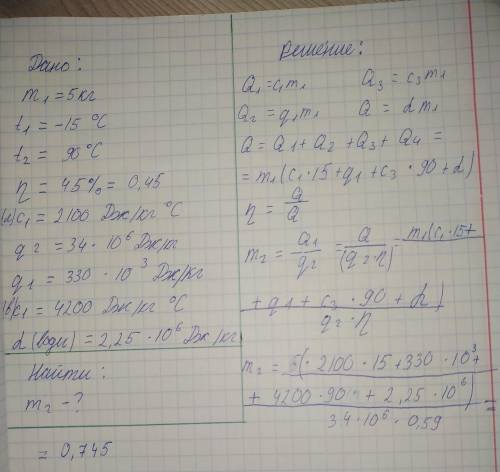 Дано:
m₁ = 5 кг
t₁ = -15 °C
t₂ = 90 °C
η = 45% = 0,45
(л)c₁ = 2100 Дж/кг °C
q₂ = 34 · 10⁶ Дж/кг
q₁ = 330 · 10³ Дж/кг
(в)c₁ = 4200 Дж/кг °C
L (воды) = 2,25 · 10⁶ Дж/кг
Найти:
m₂ - ?
= 0,745
Решение:
Q₁ = c₁m₁ Q₃ = c₃m₁
Q₂ = q₁m₁ Q = Lm₁
Q = Q₁ + Q₂ + Q₃ + Q₄ =
= m₁(c₁·15 + q₁ + c₃ · 90 + L)
η = Q/Q
m₂ = Q₁/q₂ = Q/(q₂·η) = m₁(c₁·15+
+ q₁ + c₃ · 90 + L)
q₂ · η
m₂ = 5(· 2100 · 15 + 330 · 10³+
+ 4200 · 90 + 2,25 · 10⁶) =
34 · 10⁶ · 0,59